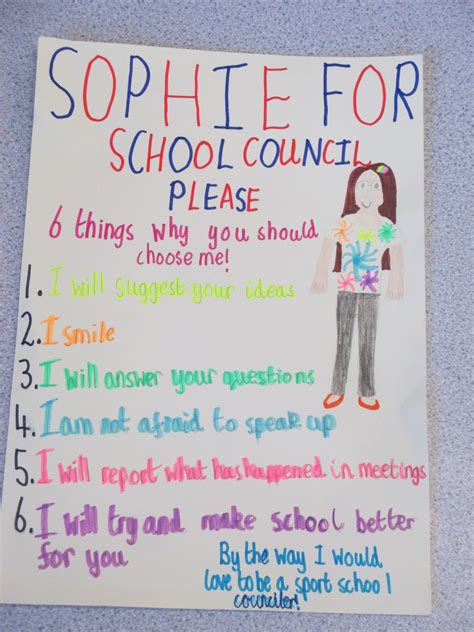 SOPHIE FOR
SCHOOL COUNCIL
PLEASE
6 things why you should
choose me!
1. I will suggest your ideas
2. I smile
3. I will answer your questions
4. I am not afraid to speak up
5. I will report what has happened in meetings
6. I will try and make school better
for you
By the way I would
love to be a sport school
counciler!